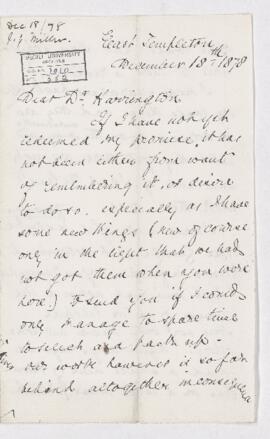 Dec 18/78
J. G. Miller
McGILL UNIVERSITY
ARCHIVES
ACC. NO.
REF.
East Templeton
December 18th 1878
Dear Dr. Harrington
If I have not yet
redeemed my promise, it has
not been either from want
of remembering it, or desire
to do so. especially as I have
some new things (new of course
only in the light that we had
not got them when you were
here) to send you if I could
only manage to spare time
to select and pack up.
our work however is so far
behind altogether in consequence